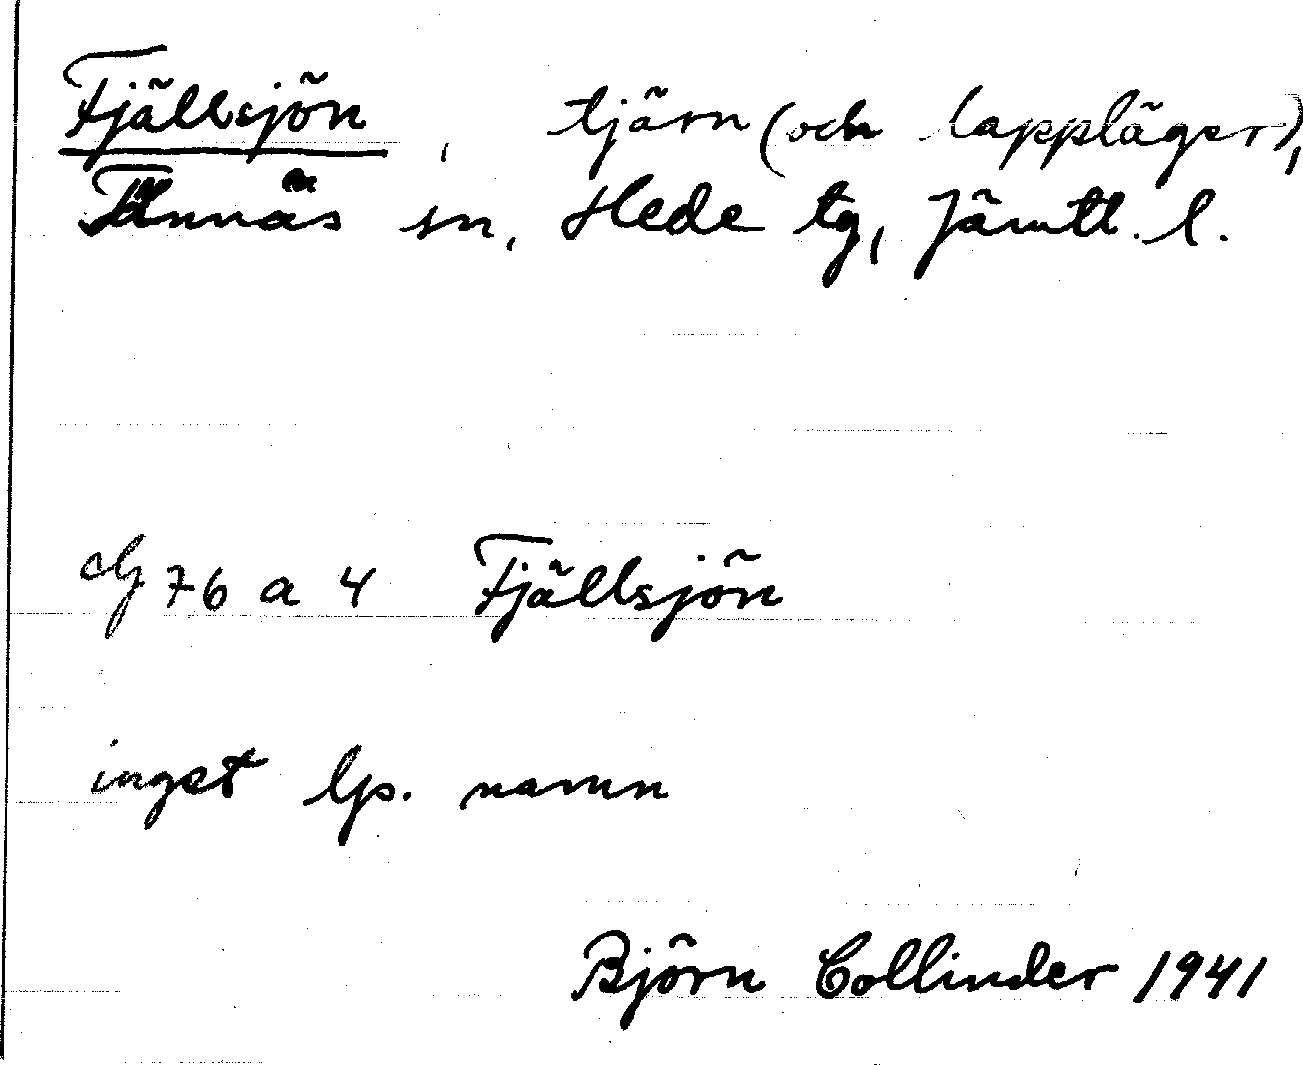 Fjällsjön, tjärn (och lappläger),
Tännäs sn, Hede tg, Jämtl. l.
76 a 4 Fjällsjön
inget lp. namn
Björn Collinder 1941